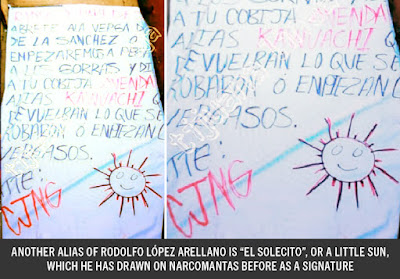 ABRETE A LA VERGA
DE LA SANCHEZ O
EMPEZAREMOS A
A LOS GORRAS Y DI
A TU COBIJA MENDA
ALIAS KAWACHI Q
DEVUELBAN LO QUE SE
ROBARON O ENPIEZAN
VERGASOS.
ATTE:
CJNG
A TU COBIJA MENDA
ALIAS KAWACHI
DEVUELRAN LO QUE SE
ROBARON O ENPIEZAN
VERGASOS.
TTE:
CJNG
ANOTHER ALIAS OF RODOLFO LÓPEZ ARELLANO IS “EL SOLECITO”, OR A LITTLE SUN,
WHICH HE HAS DRAWN ON NARCOMANTAS BEFORE AS A SIGNATURE